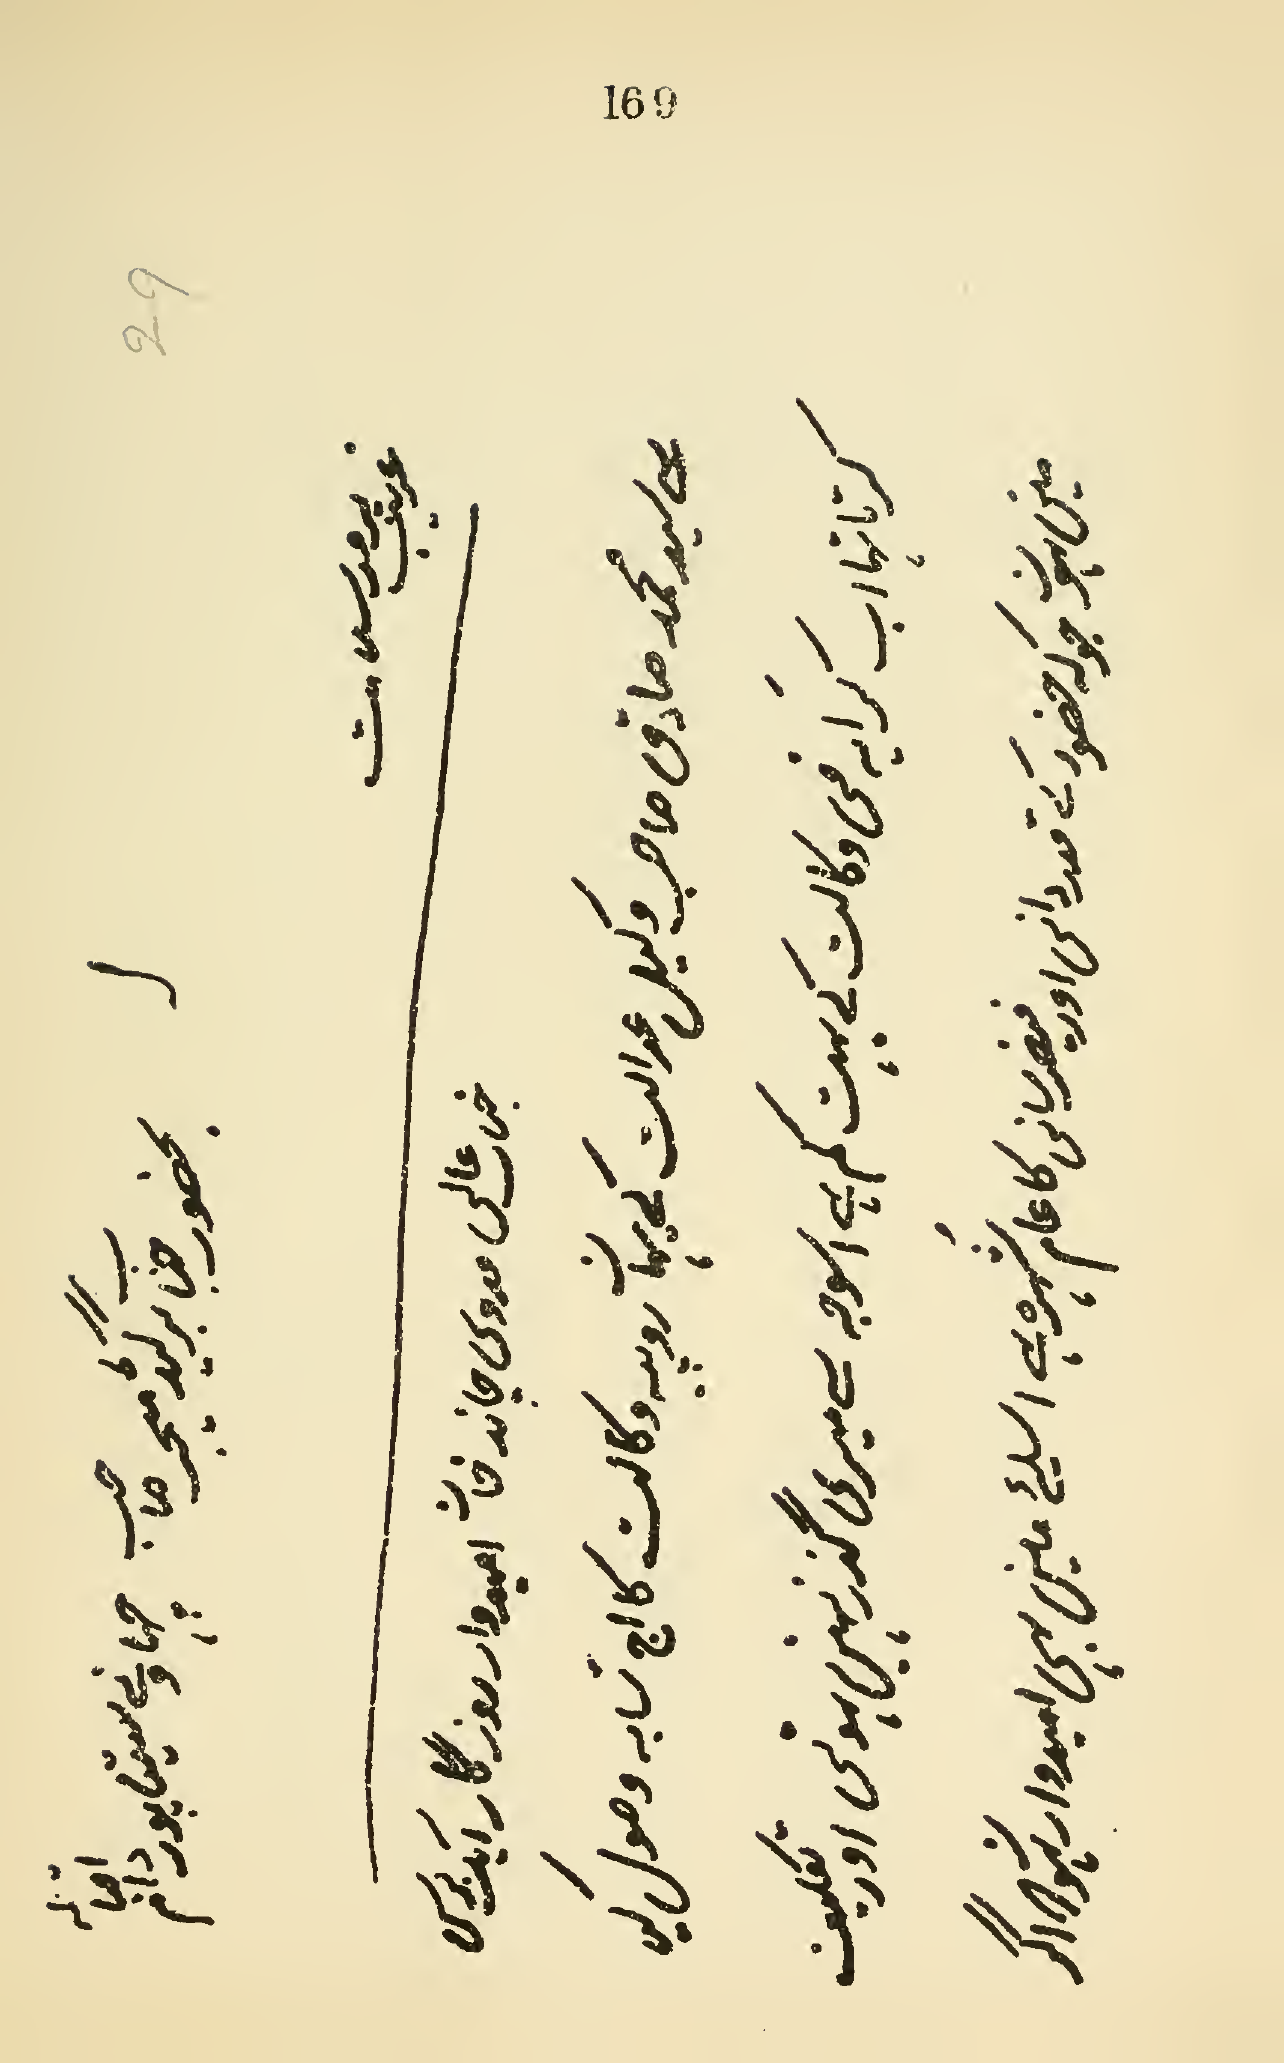 169
29
بحضور جناب بریگیڈ میجر صاحب چھاونے سیتاپور دام اقبالہ
غریب پرور سلامت
جناب عالی فدوی چاند خان امیدوار روزگار ایک برس
سے سید محمد صادق صاحب وکیل عدالت کے یہان روپیہ وکالت کا اج تک وصول
کرتا تہا اب کرایہ فی وکالت کے بہت کم ہے اسوجہ سے میری گذر نہین ہوتی اور تکلیف
مین ہون جو کہ حضور کے قدردانی اور فیض رسانی کا عام شہرہ ہے اسلئے مین بہی امیدوار ہون اگر